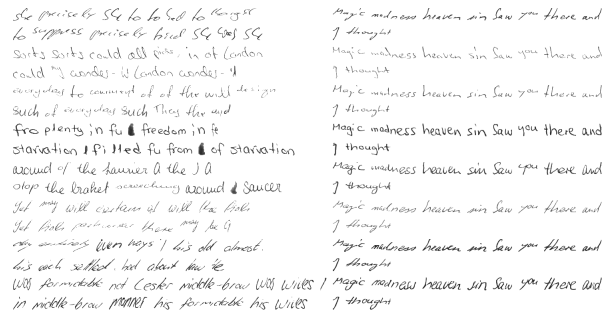 she precisely she to to had to thought
to suppress precisely had she was she
sorts sorts could all pubs. in of London
could my wondes- is London wondes-
everyday to command of of the will design
such of everyday such They the and
fro plenty in fu freedom in fe
starvation I filled fu from of starvation
around of the hammer A the J A
stop the bracket screeching around saucer
Yet may will will the
Yet there may be G
only even ways ' his old almost.
his each settled. had about
was formidable not Lester middle-brow was wives I
in middle-brow manner his formidable his wives
Magic madness heaven sin Saw you there and
I thought
Magic madness heaven sin Saw you there and
I thought
Magic madness heaven sin Saw you there and
I thought
Magic madness heaven sin Saw you there and
I thought
Magic madness heaven sin Saw you there and
I thought
Magic madness heaven sin Saw you there and
I thought
Magic madness heaven sin Saw you there and
I thought
Magic madness heaven sin Saw you there and
I thought